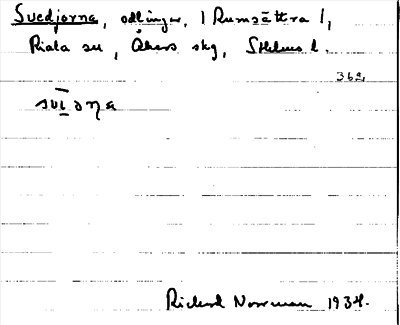 Svedjorna, odlingar, / Rumsättra /,
Riala sn, Åkers skg, Sthlms l.
362,
svīəŋa
Richard Norrman 1934.